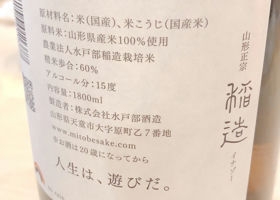 原材料名:米(国産)、米こうじ(国産米)
原料米:山形県産米100%使用
農業法人水戸部稲造栽培米
精米歩合:60%
アルコール分:15度
内容量:1800ml
製造者:株式会社水戸部酒造
山形県天童市大字原町乙7番地
www.mitobesake.com
※お酒は20歳になってから
人生は、遊びだ。
山形正宗
稲造
イナゾー